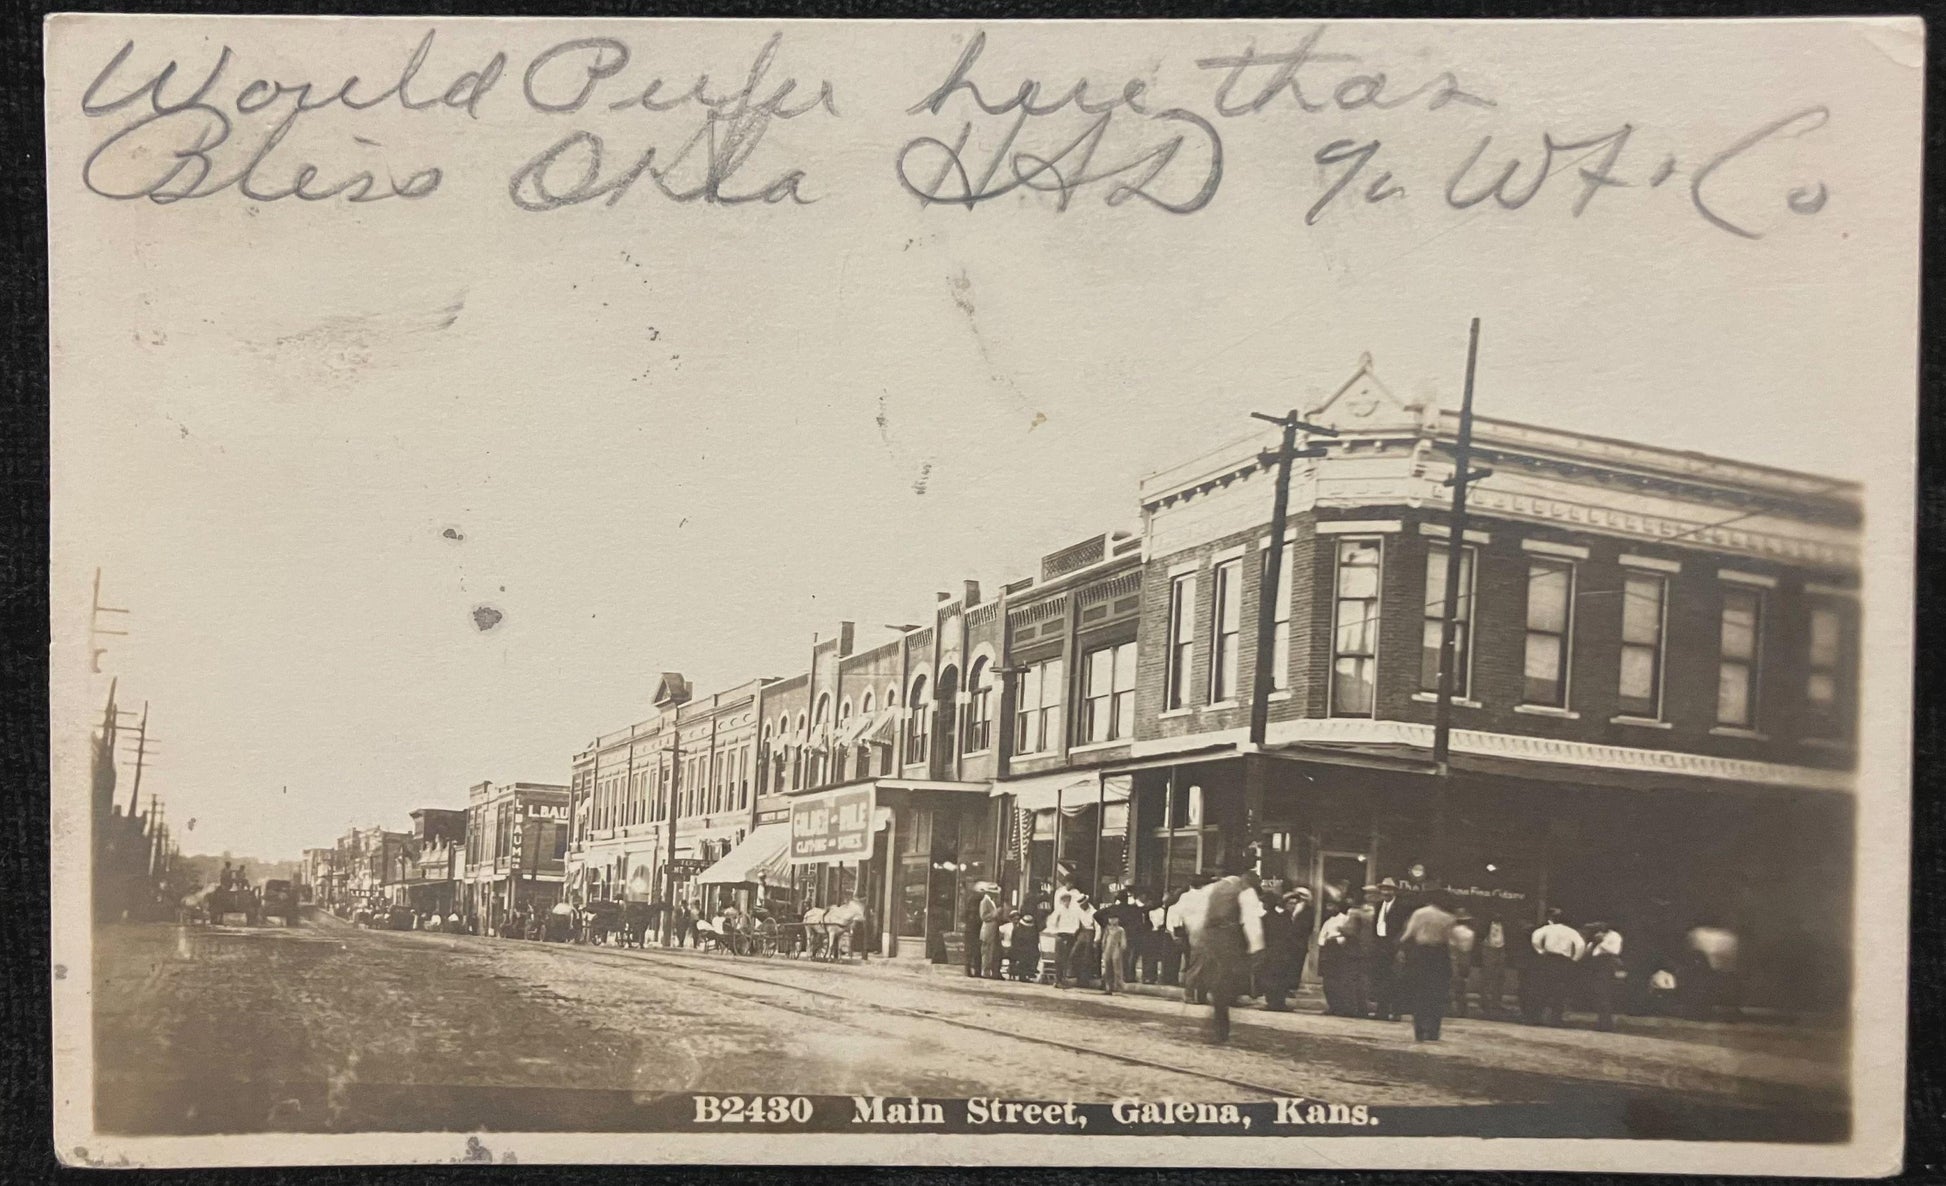 Would Prefer here than
Bliss Okla HSD % Wf. Co
L. BAU
CLOTHING AND SHOES.
B2430 Main Street, Galena, Kans.